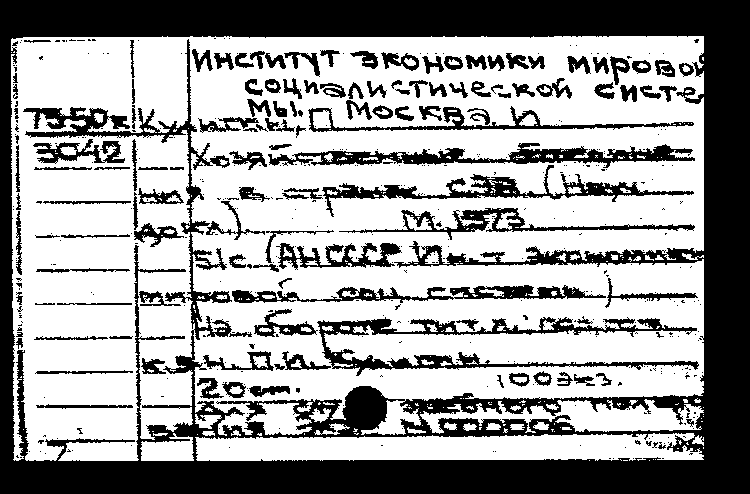 ИНСТИТУТ ЭКОНОМИКИ МИРОВОЙ
СОЦИАЛИСТИЧЕСКОЙ СИСТЕ
МЫ. МОСКВА.
3042
Хозяйственные объедине-
ния в странах СЭВ. (Науч.
докл.) М., 1973.
51с. (АН СССР Ин-т экономики
мировой соц. системы)
На обороте тит. л.:
к.э.н. П.И.
20 см. 100экз.
Для служебного пользо
вания Экз. N 000006